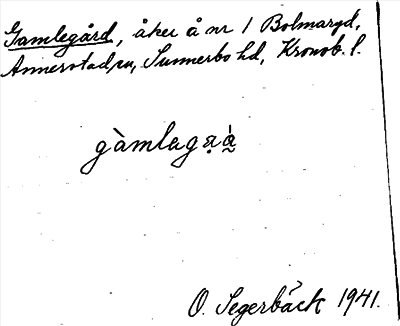 Gamlegård, åker å nr 1 Bolmaryd,
Annerstad, sn, Sunnerbo hd, Kronob. l.
gàmlagạạ̀
O. Segerbäck 1941.